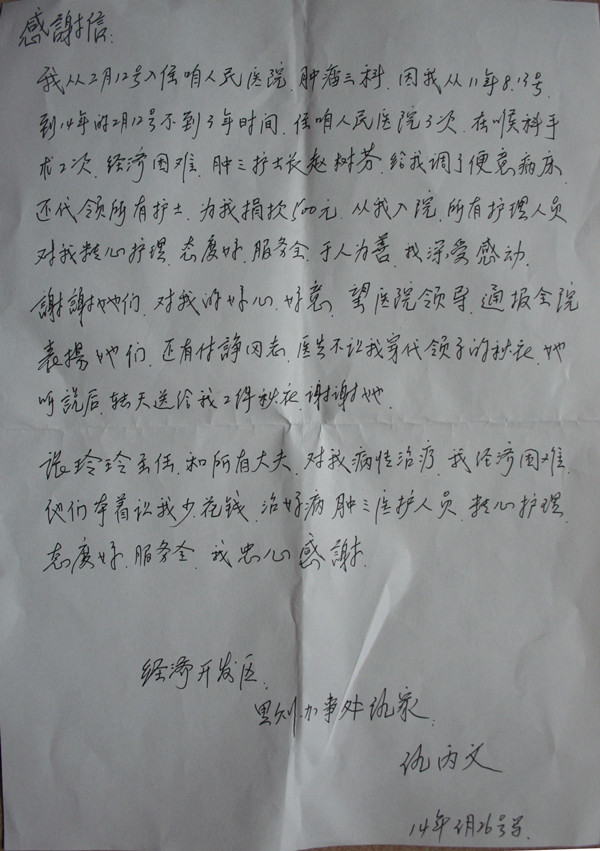 感謝信:
我从2月12号入住咱人民医院.肿瘤三科.因我从11年8.13号
到14年的2月12号不到3年时间.住咱人民医院3次.在喉科手
术2次.经济困难.肿三护士长赵树芬.给我调了便意病床.
还代领所有护士.为我捐款500元.从我入院.所有护理人员
对我精心护理.态度好.服务全.于人为善.我深爱感动.
謝謝她们.对我的好心.好意.望医院领导.通报全院
表揚她们.还有付諍同志.医生不让我穿代领子的秋衣.她
听説后.转天送给我2件秋衣.谢谢她.
张玲玲主任.和所有大夫.对我病情治疗.我经济困难.
他们本着让我少花钱.治好病.肿三医护人员.精心护理.
态度好.服务全.我忠心感謝.
经济开发区.
里则办事处仇家.
仇丙文
14年2月26号